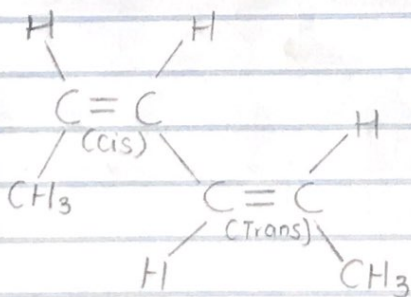 H H
C = C
(Cis)
CH3 H
C = C
(Trans)
H CH3